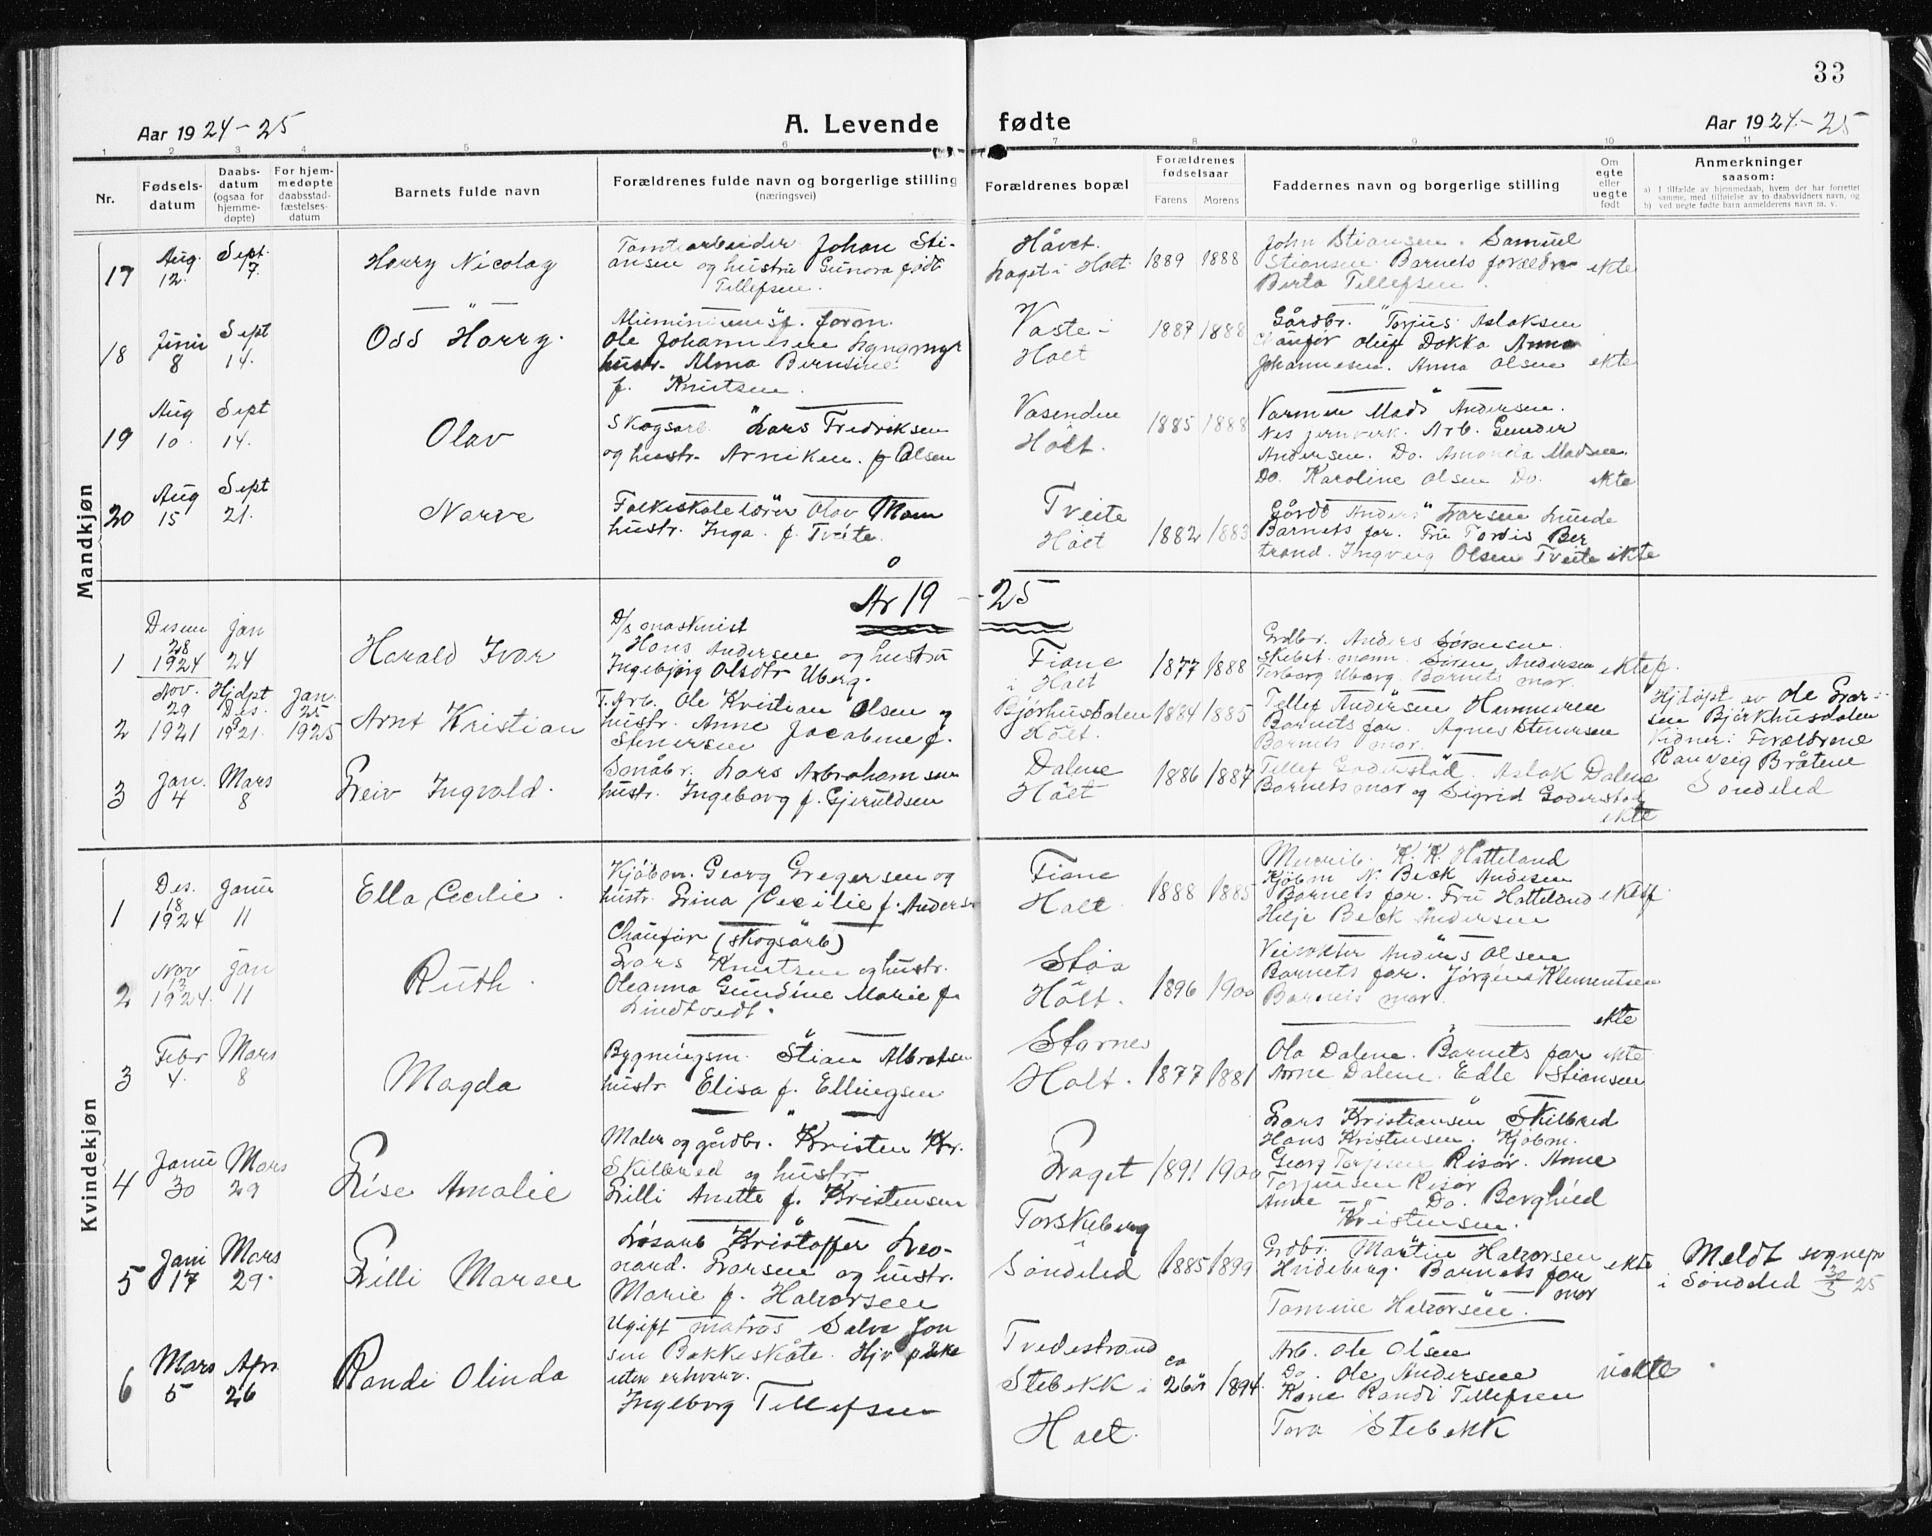 33
Aar 1924-25 A. Levende fødte Aar 1924-25
1 2 3 4 5 6 7 8 9 10 11
Nr.
Fødsels-
datum
Daabs-
datum
(ogsaa for
hjemme-
døpte)
For hjem-
medøpte
daabsstad-
fæstelses-
datum
Barnets fulde navn
Forældrenes fulde navn og borgerlige stilling
(næringsvei)
Forældrenes bopæl
Forældrenes
fødselsaar
Farens Morens
Faddernes navn og borgerlige stilling
Om
egte
eller
uegte
født
Anmerkninger
saasom:
a) I tilfælde av hjemmedaab, hvem der har forrettet
samme, med tilføielse av to daabsvidners navn, og
b) ved uegte fødte barn anmelderens navn m. v.
Mandkjøn
17 Aug. 12. Sept. 7.
Harry Nicolay
Tomtearbeider Johan Sti-
ansen og hustru Gunora født
Tillefsen.
Håvet
haget i Holt 1889 1888
John Stiansen. Samuel
Stiansen. Barnets forældre
Berta Tellefsen. ekte
18 Juni 8 Sept 14.
Odd Harry.
Ole Johannesen Lyngmyr
hustr. Alma Bernsine
f. Knutsen.
Vaste i
Holt 1887 1888
Gårdbr. Torjus Aslaksen
Oluf Dokka Anna
Johannesen. Anna Olsen ekte
19 Aug 10. Sept 14.
Olav
Skogsarb. Lars Fredriksen
og hustr. Arniken f. Olsen
Vasenden
Holt. 1885 1888
Mads Andersen.
Nes jernverk. Arb. Gunder
Andersen. Do. Amanda Madsen.
Do. Karoline Olsen Do. ekte
20 Aug 15 Sept 21.
Narve
Folkeskolelærer Olav Mom
hustr. Inga f. Tveite.
Tveite
Holt 1882 1883
Gårdb Anders Larsen Lunde
Barnets far. Fru Tordis Ber
trand. Ingveig Olsen Tveite ekte
År 19 - 25
1 Desem 28 1924 Jan 24
Harald Ivar
D/s maskinist
Hans Andersen og hustru
Ingebjørg Olsdtr Uberg.
Fiane
i Holt 1877 1888
Grdbr. Anders Sørensen
Søren Andersen
Torborg Uberg. Barnets mor. ektef.
2 Nov. 29 1921 Hjdpt Des. 1921. Jan. 25 1925
Arnt Kristian
T. Arb. Ole Kristian Olsen og
hustr. Anne Jacobine f.
Stenersen
Bjørhusdalen
Holt. 1884 1885
Tellef Andersen Hammeren
Barnets far. Agnes Stenersen
Barnets mor.
Hjdøpt av Ole Lar-
sen Bjørkhusdalen
Vidner: Forældrene
Ranveig Bråtene
Søndeled
3 Jan. 4 Mars 8
Leiv Ingvald.
Småbr. Lars Abrahamsen
hustr. Ingeborg f. Gjeruldsen
Dalene
Holt 1886 1887
Tellef Goderstad. Aslak Dalene
Barnets mor og Sigrid Goderstad
ekte
Kvindekjøn
1 Des. 18 1924 Janu 11
Ella Cecilie.
Kjøbm. Georg Gregersen og
hustr. Lina Cecilie f. Anders
Fiane
Holt 1888 1885
K. K. Hatteland
Kjøbm N. Beck Andersen
Barnets far. Fru Hatteland ektef
Helje Beck Andersen
2 Nov 13 1924. Jan 11
Ruth.
Chaufør (skogsarb)
Lars Knutsen og hustr.
Oleanna Gundine Marie f.
Lindtvedt.
Støa
Holt. 1896 1900
Veivokter Anders Olsen
Barnets far. Jørgine Klementsen
Barnets mor.
ekte
3 Febr 4. Mars 8
Magda
Bygningsm. Stian Albretsen
hustr Elisa f. Ellingsen
Starnes
Holt. 1877 1881
Ola Dalene. Barnets far ekte
Arne Dalene. Edle Stiansen
4 Janu 30 Mars 29
Lise Amalie
Maler og gårdbr. Kristen Kr.
Skilbred og hustr.
Lilli Anette f. Kristensen
Laget 1891 1900
Lars Kristiansen Skilbred
Hans Kristensen. Kjøbm.
Georg Torjesen Risør. Anne
Torjensen Risør
Anne Do. Borghild
Kristensen.
5 Janu 17 Mars 29.
Lilli Maren
Løsarb Kristoffer Leo-
nard. Larsen og hustr.
Marie f. Halvorsen
Torskeberg
Søndeled 1885 1899
Grdbr. Martin Halvorsen
Hideberg. Barnets far
mor
Tomine Halvorsen. ekte
Meldt sognepr
i Søndeled 30/3 25
6 Mars 5 Apr. 26
Randi Olinda
Ugift matros Salve Jon
sen Bakkeskåte. Hjv pike
uten erhverv.
Ingeborg Tellefsen
Tvedestrand
Stebekk i
Holt. ca 26 år 1894.
Arb. Ole Olsen
Do. Ole Andersen
Kone Randi Tellefsen
Tora Stebekk uekte